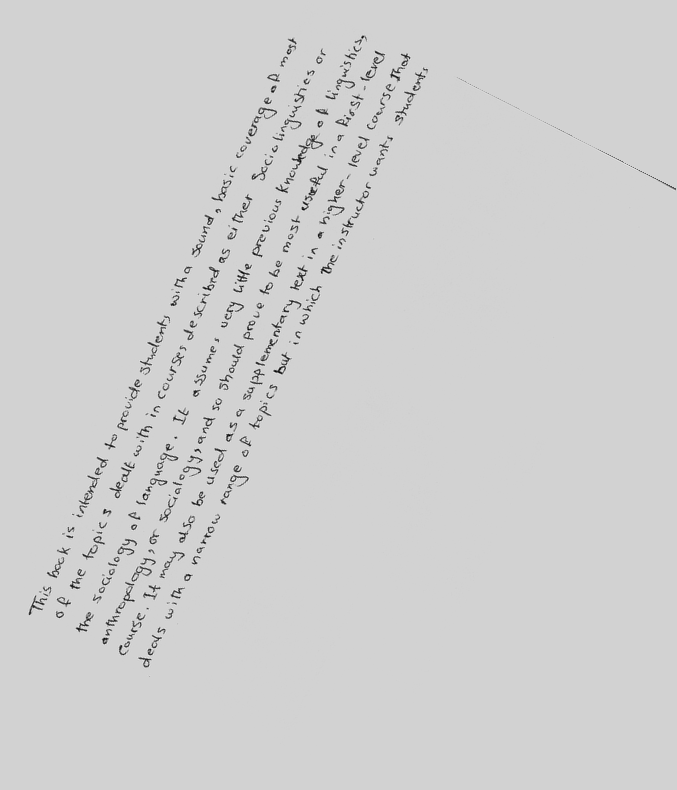 This book is intended to provide students with a sound, basic coverage of most
of the topics dealt with in courses described as either Sociolinguistics or
the sociology of language. It assumes very little previous knowledge of linguistics,
anthropology, or sociology, and so should prove to be most useful in a first-level
course. It may also be used as a supplementary text in a higher-level course that
deals with a narrow range of topics but in which the instructor wants students